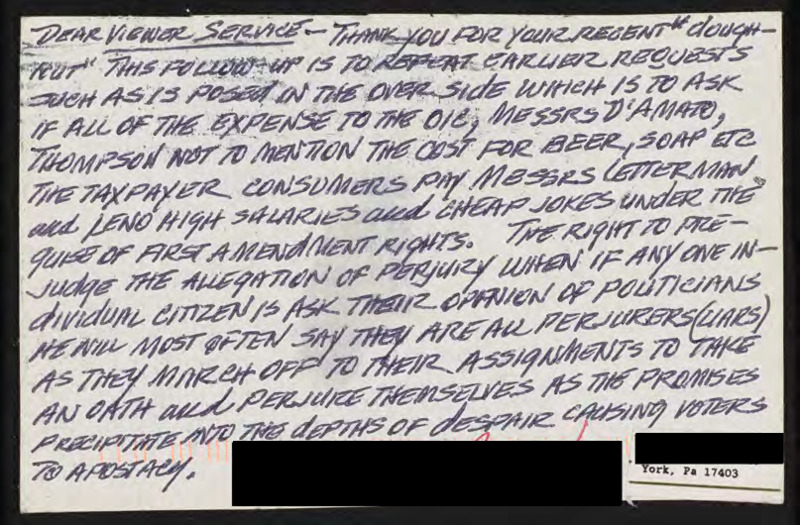 DEAR VIEWER SERVICE - THANK YOU FOR YOUR RECENT "dough-
NUT" THIS FOLLOW-UP IS TO REPEAT EARLIER REQUESTS
SUCH AS IS POSED IN THE OVER SIDE WHICH IS TO ASK
IF ALL OF THE EXPENSE TO THE OIC, MESSRS D'AMATO,
THOMPSON NOT TO MENTION THE COST FOR BEER, SOAP ETC
THE TAXPAYER CONSUMERS PAY MESSRS LETTERMAN
and LENO HIGH SALARIES and CHEAP JOKES UNDER THE
GUISE OF FIRST AMENDMENT RIGHTS. THE RIGHT TO PRE-
JUDGE THE ALLEGATION OF PERJURY WHEN IF ANY ONE IN-
dividual CITIZEN IS ASK THEIR OPINION OF POLITICIANS
HE WILL MOST OFTEN SAY THEY ARE ALL PERJURERS (LIARS)
AS THEY MARCH OFF TO THEIR ASSIGNMENTS TO TAKE
AN OATH and PERJURE THEMSELVES AS THE PROMISES
PRECIPITATE INTO THE DEPTHS OF DESPAIR CAUSING VOTERS
TO APOSTACY.
York, Pa 17403